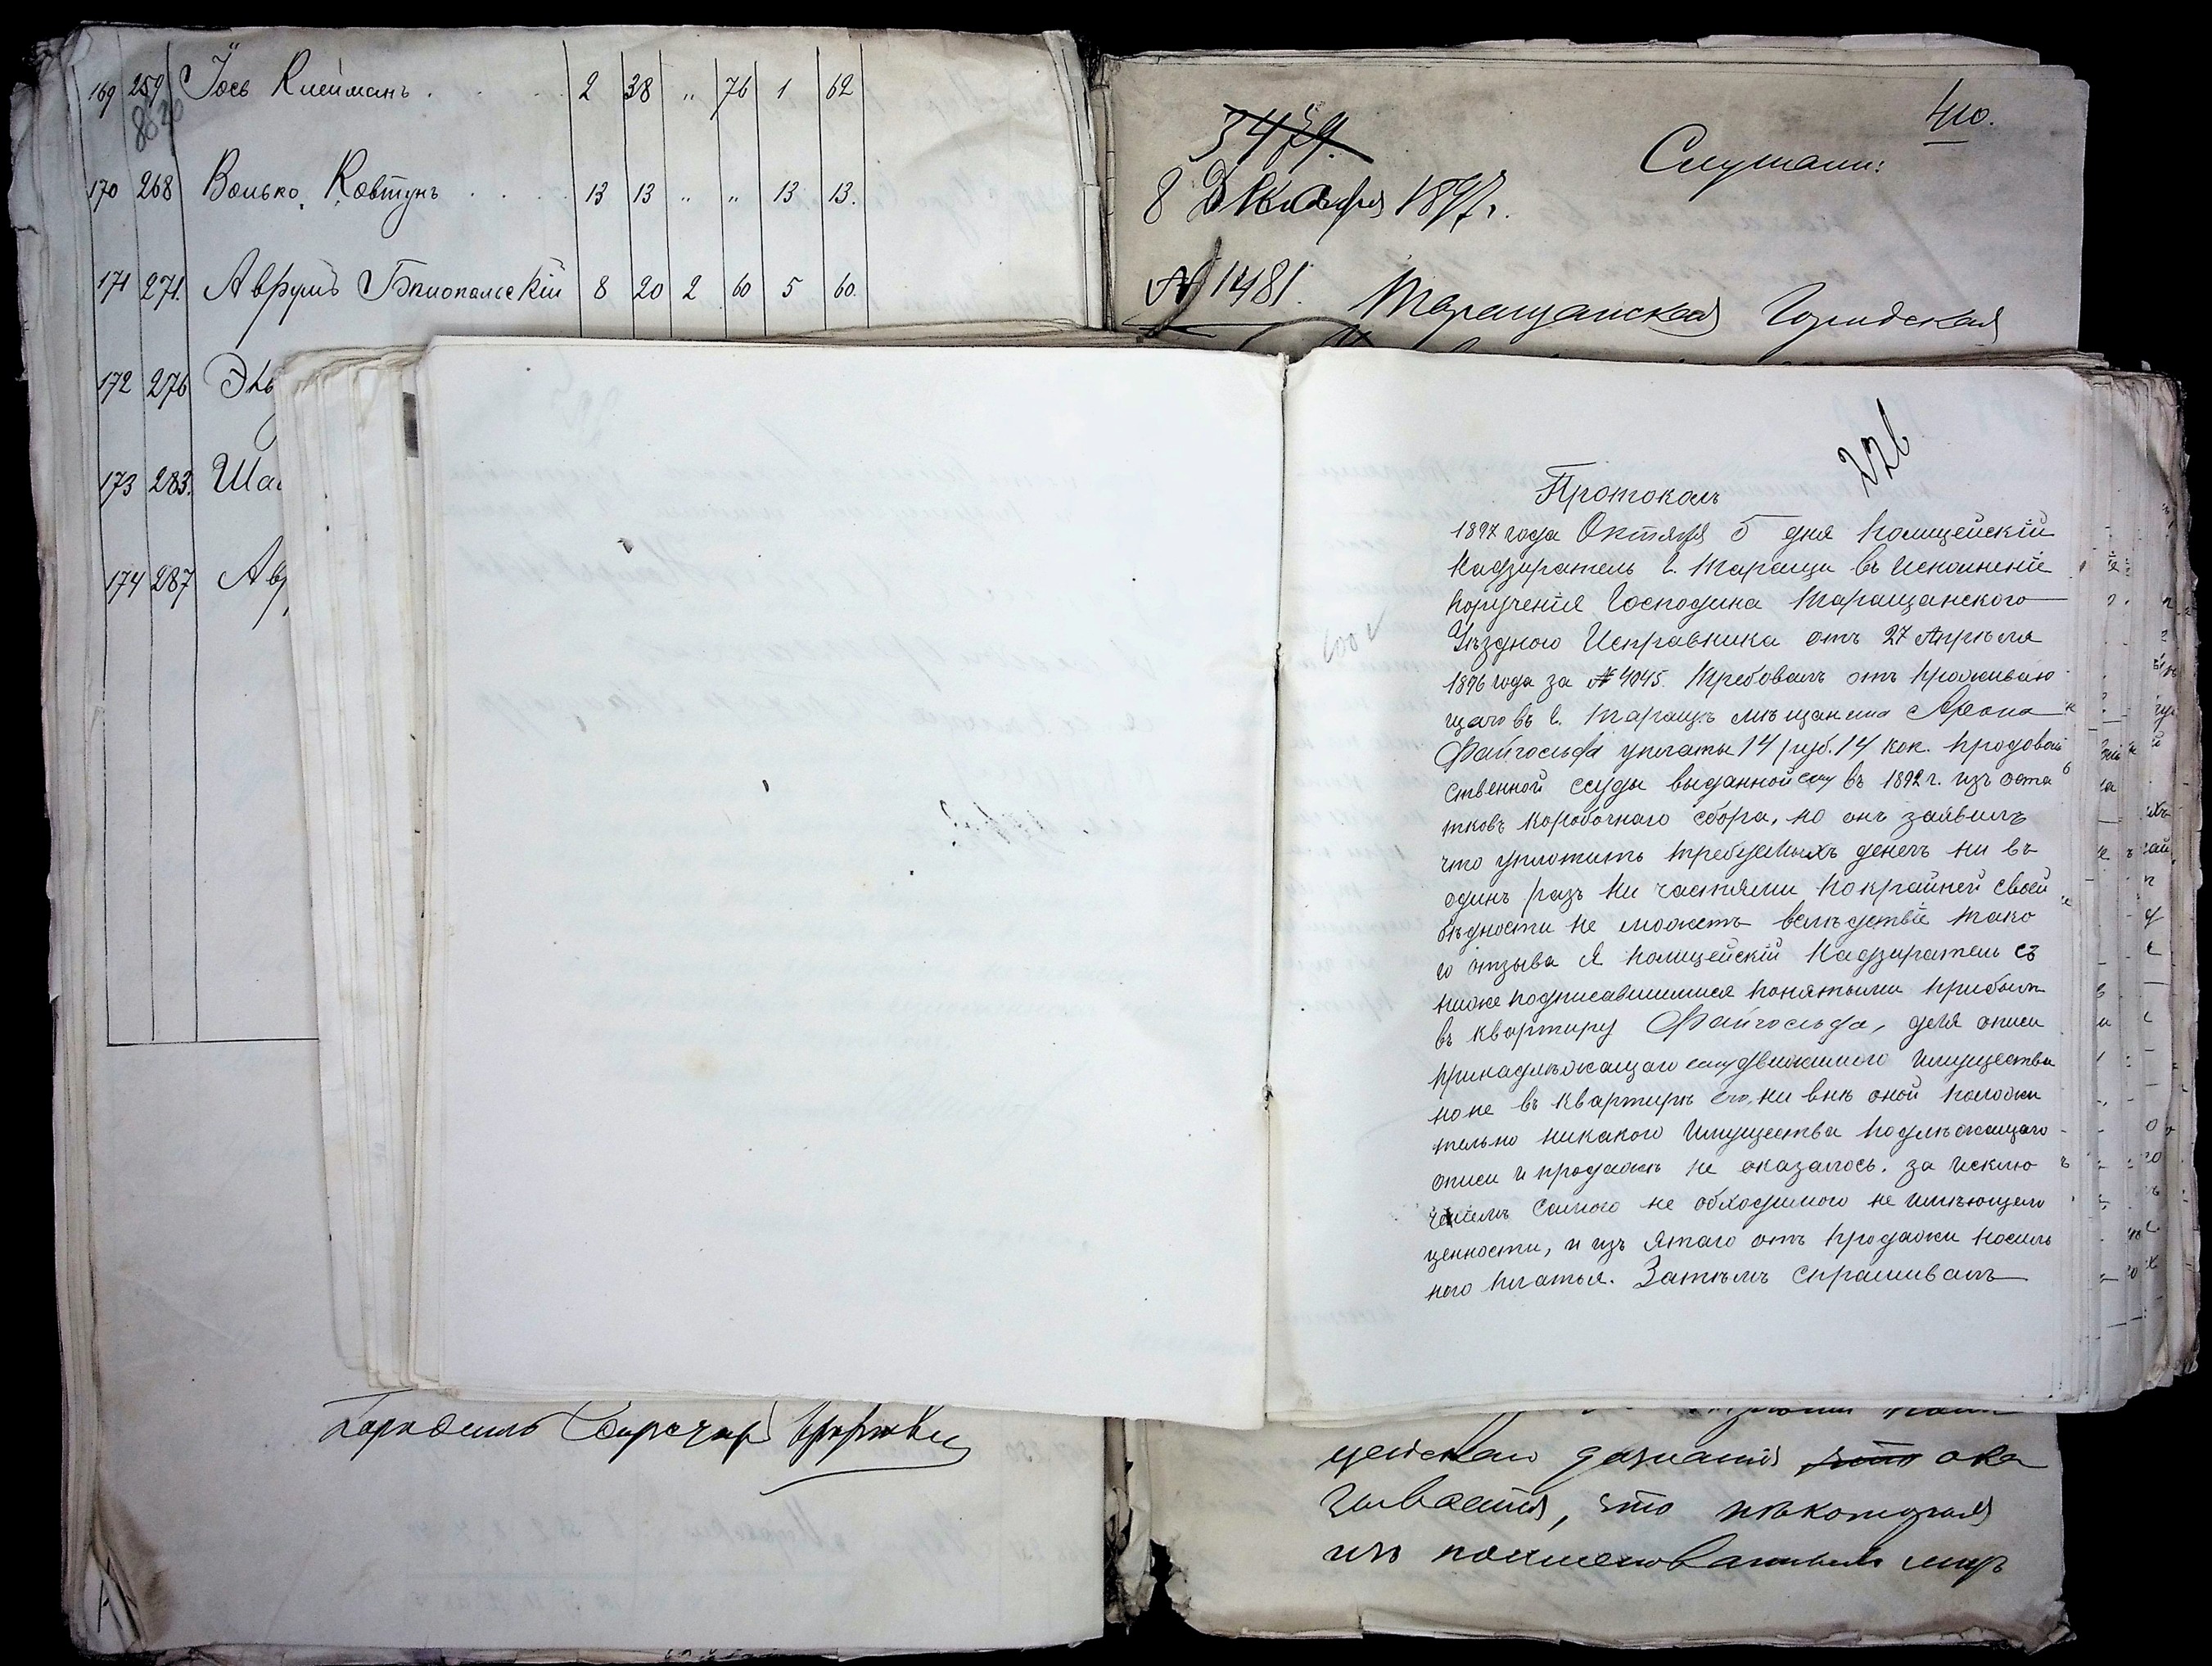 169 259 Іось Клейманъ . . . 2 38 „ 76 1 62
170 268 Волько Ковтунъ . . . 13 13 „ „ 13 13.
171 271. Аврумъ Бялопольскій 8 20 2 60 5 60.
172 276
173 283.
174 287
410.
3479.
Слушали:
8 Декабря 1897 г.
№ 1481.
Таращанская Городская
226
Протоколъ
1897 года Октября 5 дня Полицейскій
Надзиратель г. Таращи въ исполненіе
порученія Господина Таращанского
Уѣзднаго Исправника отъ 27 Апрѣля
1896 года за № 4045. требовалъ отъ проживаю
щаго въ г. Таращѣ мѣщанина Арона
Файгольда уплаты 14 руб. 14 коп. продоволь
ственной ссуды выданной ему въ 1892 г. изъ оста
тковъ коробочнаго сбора, но онъ заявилъ
что уплотить требуемыхъ денегъ ни въ
одинъ разъ ни частями покрайней своей
бѣдности не можетъ вслѣдствіе тако
го отзыва Я Полицейскій Надзиратель съ
ниже подписавшимися понятыми прибылъ
въ квартиру Файгольда, для описи
принадлѣжащаго ему движимого имущества
но не въ квартирѣ его, ни внѣ оной положи
тельно никакого имущества подлѣжащаго
описи и продажѣ не оказалось. за исклю
ченіемъ самого не обходимого не имѣющего
ценности, и изъ ятаго отъ продажи носиль
ного платья. Затѣмъ спрашивалъ
цейскаго дознанія что ока
зывается, что нѣкоторыя
изъ поименованныхъ лицъ